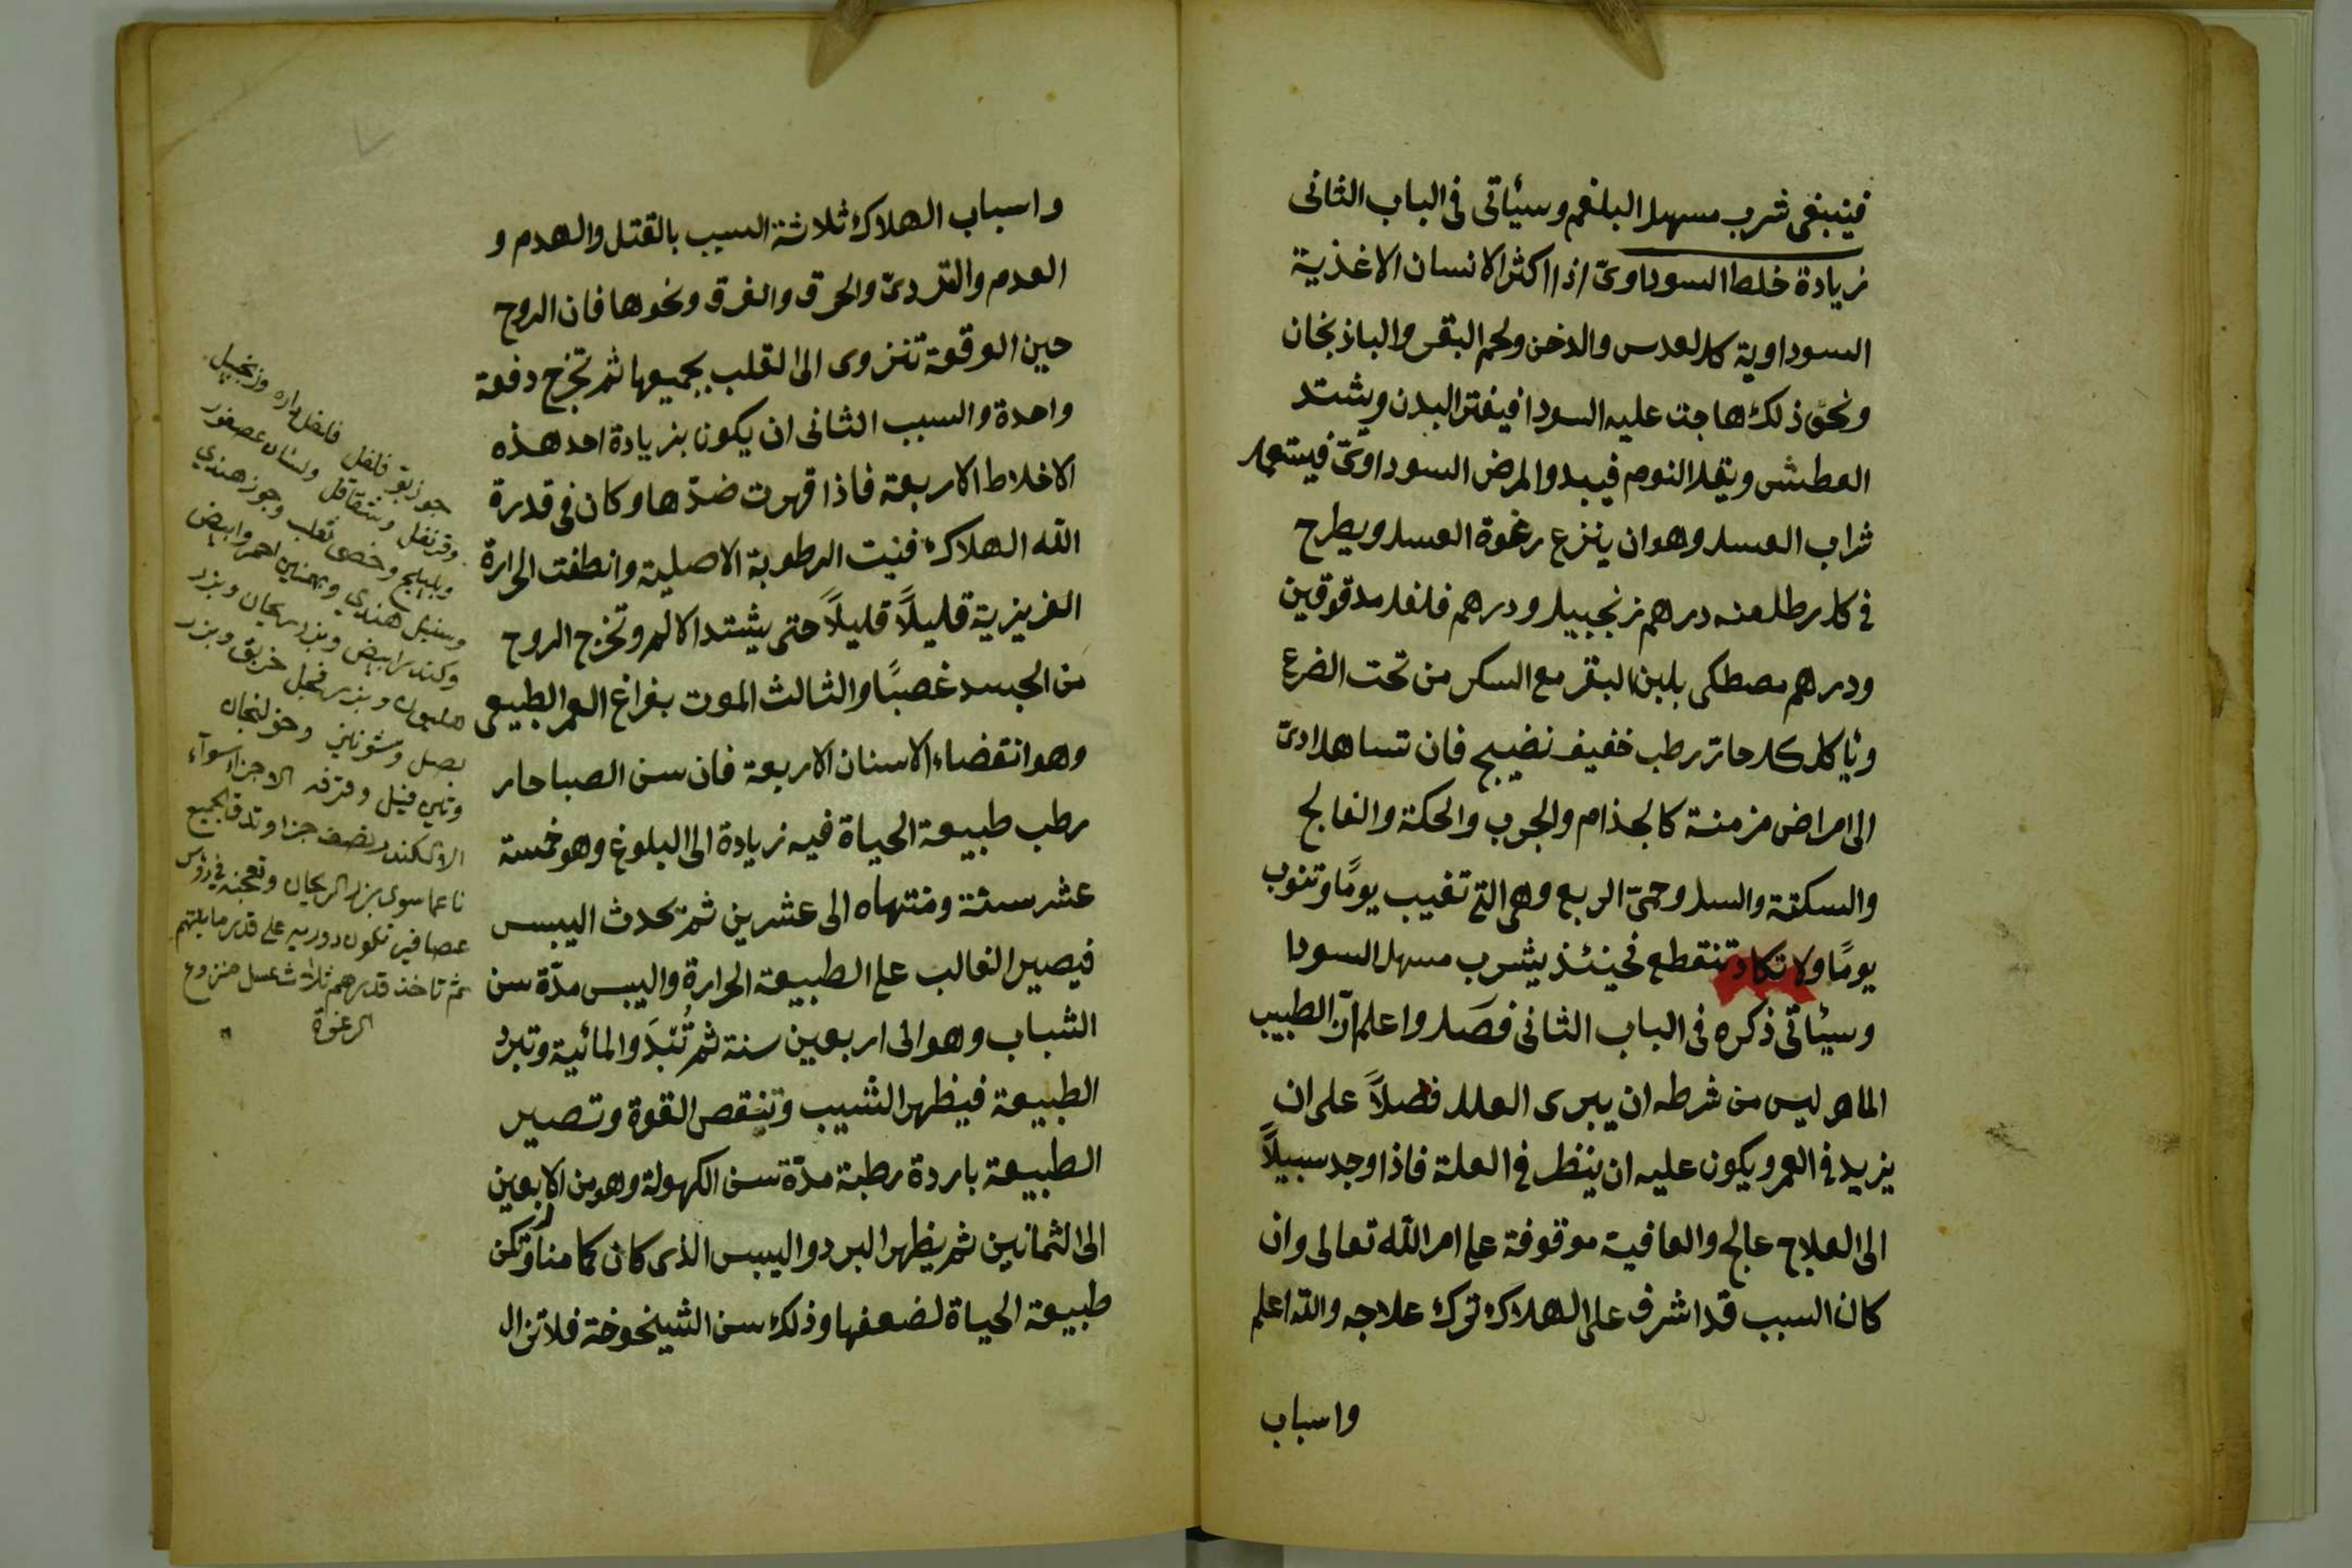 فينبغى شرب مسهل البلغم وسيأتى فى الباب الثانى
زيادة خلط السوداوىّ اذا اكثر الانسان الاغذية
السوداوية كالعدس والدخن ولحم البقر والباذنجان
ونحو ذلك هاجت عليه السودا فيفتر البدن ويشتد
العطش ويقل النوم فيبدو المرض السوداوىّ فيستعمل
شراب العسل وهو ان ينزع رغوة العسل ويطرح
فى كل رطل منه درهم زنجبيل ودرهم فلفل مدقوقين
ودرهم مصطكى بلبن البقر مع السكر من تحت الضرع
ويأكل كل حار رطب خفيف نضيج فان تساهل ادىّ
الى امراض مزمنة كالجذام والجرب والحكة والفالج
والسكتة والسل وحمىّ الربع وهى التى تغيب يومًا وتنوب
يومًا ولا تكاد تنقطع فحينئذ يشرب مسهل السودا
وسيأتى ذكره فى الباب الثانى فصَل واعلم انّ الطبيب
الماهر ليس من شرطه ان يبرى العلل فضلاً على ان
يزيد فى العمر ويكون عليه ان ينظر فى العلة فاذا وجد سبيلاً
الى العلاج عالج والعافية موقوفة على امر الله تعالى وان
كان السبب قد اشرف على الهلاك ترك علاجه والله اعلم
واسباب
واسباب الهلاك ثلاثة السبب بالقتل والهدم و
العدم والتردىّ والحرق والغرق ونحوها فان الروح
حين الوقعة تنزوى الى القلب بجميعها ثم تخرج دفعة
واحدة والسبب الثانى ان يكون بزيادة احد هذه
الاخلاط الاربعة فاذا قهرت ضدّها وكان فى قدرة
الله الهلاك فنيت الرطوبة الاصلية وانطفت الحرارة
الغريزية قليلاً قليلاً حتى يشتد الالم وتخرج الروح
من الجسد غصبًا والثالث الموت بفراغ العمر الطبيعى
وهو انقضاء الاسنان الاربعة فان سن الصبا حار
رطب طبيعة الحياة فيه زيادة الى البلوغ وهو خمسة
عشر سنة ومنتهاه الى عشرين ثم تحدث اليبس
فيصير الغالب على الطبيعة الحرارة واليبس مدّة سن
الشباب وهو الى اربعين سنة ثم تُبْدَو المائية وتبرد
الطبيعة فيظهر الشيب وتنقص القوة وتصير
الطبيعة باردة رطبة مدّة سن الكهولة وهو من الاربعين
الى الثمانين ثم يظهر البرد واليبس الذى كان كامنا
طبيعة الحياة لضعفها وذلك سن الشيخوخة فلا تزال
جوز بو فلفل وزنجبيل
وقرنفل وشقاقل ولسان عصفور
وخصى ثعلب وجوز هندي
وسنبل هندي وبهمنين احمر وابيض
وكندر ابيض وبزر ريحان وبزر
هليون وبزر فجل وبزر
بصل وشونيز وخولنجان
وقرفه الاجزا سوآء
الا الكندر نصف جزا وتدق الجميع
ناعما سوى بزر الريحان وتعجنه فى رؤس
عصافير على قدر ما يلتهم
ثم تاخذ قدرهم ثلاث عسل منزوع
الرغوة